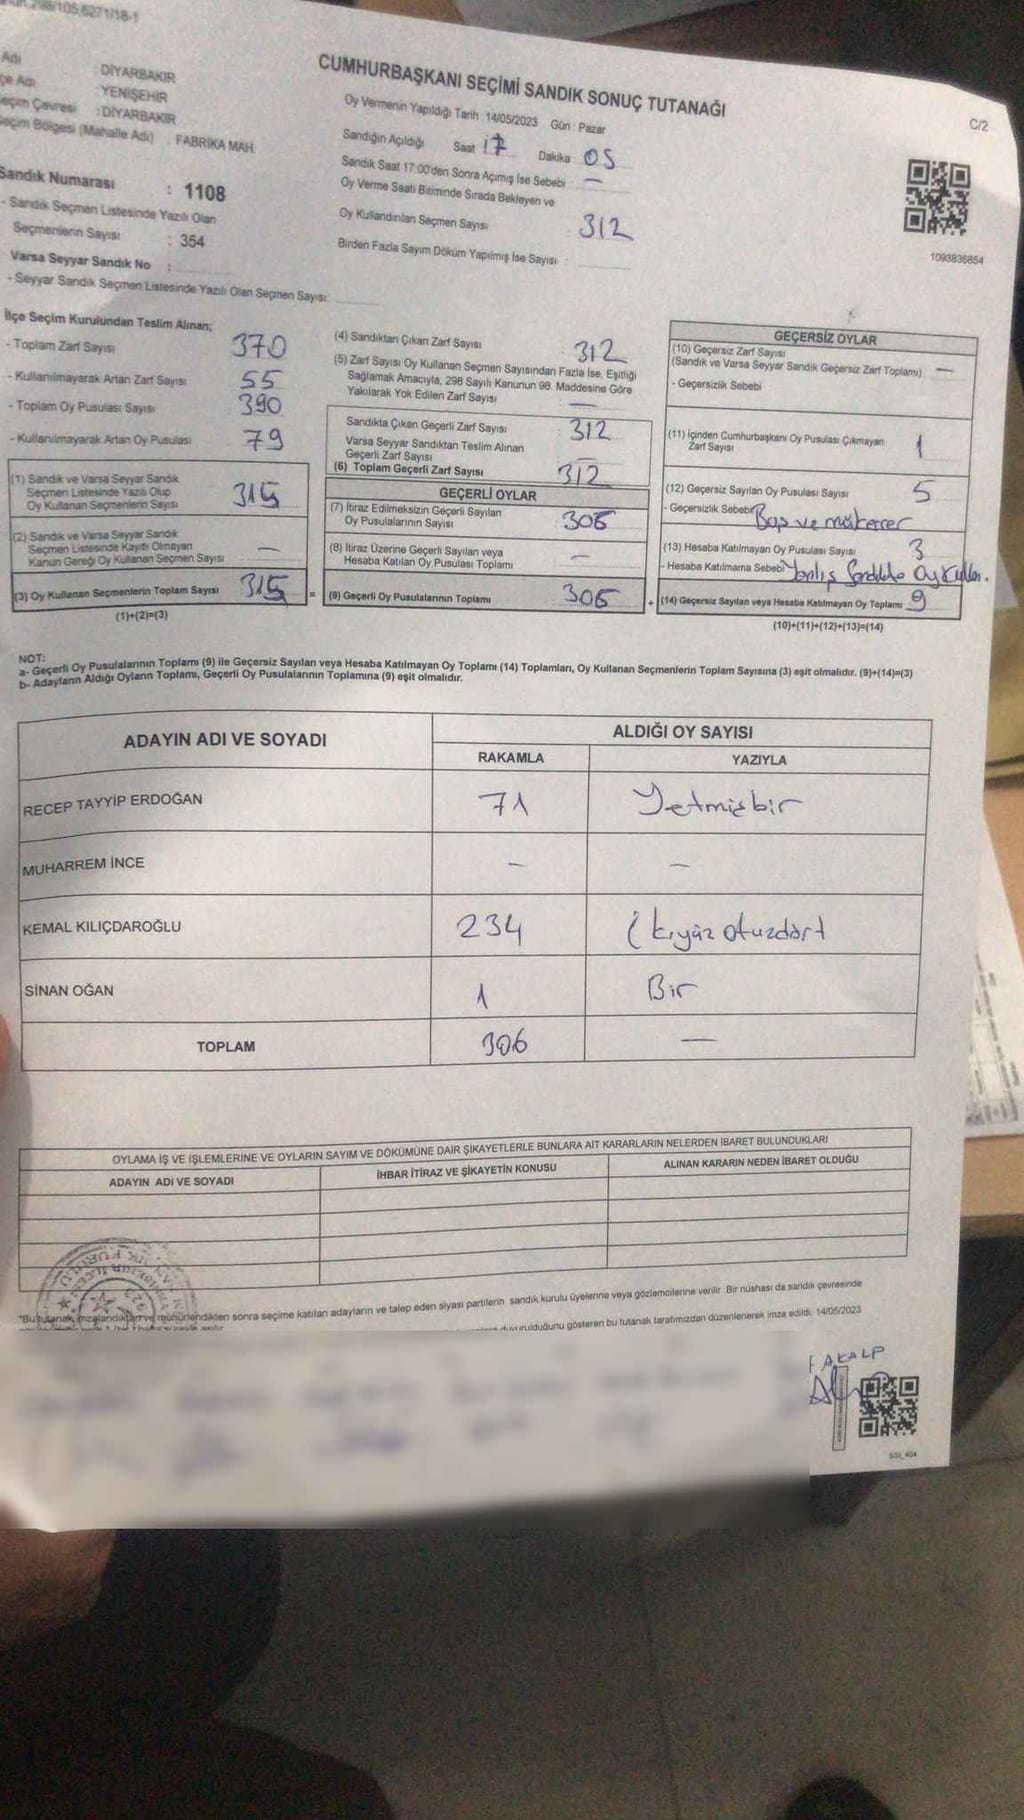 CUMHURBAŞKANI SEÇİMİ SANDIK SONUÇ TUTANAĞI
C/2
Adı DİYARBAKIR
YENİŞEHİR
Seçim Çevresi :DİYARBAKIR
Seçim Bölgesi (Mahalle Adı) FABRİKA MAH.
Oy Vermenin Yapıldığı Tarih :14/05/2023 Gün : Pazar
Sandığın Açıldığı Saat 17 Dakika 05
Sandık Saat 17:00'den Sonra Açılmış İse Sebebi : —
Oy Verme Saati Bitiminde Sırada Bekleyen ve
Oy Kullandırılan Seçmen Sayısı 312
Birden Fazla Sayım Döküm Yapılmış İse Sayısı :
1093836854
Sandık Numarası : 1108
- Sandık Seçmen Listesinde Yazılı Olan
Seçmenlerin Sayısı : 354
Varsa Seyyar Sandık No :
- Seyyar Sandık Seçmen Listesinde Yazılı Olan Seçmen Sayısı:
İlçe Seçim Kurulundan Teslim Alınan;
- Toplam Zarf Sayısı 370
- Kullanılmayarak Artan Zarf Sayısı 55
- Toplam Oy Pusulası Sayısı 390
- Kullanılmayarak Artan Oy Pusulası 79
(1) Sandık ve Varsa Seyyar Sandık
Seçmen Listesinde Yazılı Olup
Oy Kullanan Seçmenlerin Sayısı 315
(2) Sandık ve Varsa Seyyar Sandık
Seçmen Listesinde Kayıtlı Olmayan
Kanun Gereği Oy Kullanan Seçmen Sayısı —
(3) Oy Kullanan Seçmenlerin Toplam Sayısı 315
(1)+(2)=(3)
(4) Sandıktan Çıkan Zarf Sayısı 312
(5) Zarf Sayısı Oy Kullanan Seçmen Sayısından Fazla İse, Eşitliği
Sağlamak Amacıyla, 298 Sayılı Kanunun 98. Maddesine Göre
Yakılarak Yok Edilen Zarf Sayısı —
Sandıkta Çıkan Geçerli Zarf Sayısı 312
Varsa Seyyar Sandıktan Teslim Alınan
Geçerli Zarf Sayısı
(6) Toplam Geçerli Zarf Sayısı 312
GEÇERLİ OYLAR
(7) İtiraz Edilmeksizin Geçerli Sayılan
Oy Pusulalarının Sayısı 306
(8) İtiraz Üzerine Geçerli Sayılan veya
Hesaba Katılan Oy Pusulası Toplamı —
= (9) Geçerli Oy Pusulalarının Toplamı 306
GEÇERSİZ OYLAR
(10) Geçersiz Zarf Sayısı
(Sandık ve Varsa Seyyar Sandık Geçersiz Zarf Toplamı) —
- Geçersizlik Sebebi
(11) İçinden Cumhurbaşkanı Oy Pusulası Çıkmayan
Zarf Sayısı 1
(12) Geçersiz Sayılan Oy Pusulası Sayısı 5
- Geçersizlik Sebebi Boş ve mükerrer
(13) Hesaba Katılmayan Oy Pusulası Sayısı 3
- Hesaba Katılmama Sebebi Yanlış Sandıkta Oy Kullan.
+ (14) Geçersiz Sayılan veya Hesaba Katılmayan Oy Toplamı 9
(10)+(11)+(12)+(13)=(14)
NOT:
a- Geçerli Oy Pusulalarının Toplamı (9) ile Geçersiz Sayılan veya Hesaba Katılmayan Oy Toplamı (14) Toplamları, Oy Kullanan Seçmenlerin Toplam Sayısına (3) eşit olmalıdır. (9)+(14)=(3)
b- Adayların Aldığı Oyların Toplamı, Geçerli Oy Pusulalarının Toplamına (9) eşit olmalıdır.
ADAYIN ADI VE SOYADI ALDIĞI OY SAYISI
RAKAMLA YAZIYLA
RECEP TAYYİP ERDOĞAN 71 Yetmişbir
MUHARREM İNCE — —
KEMAL KILIÇDAROĞLU 234 İkiyüz otuzdört
SİNAN OĞAN 1 Bir
TOPLAM 306 —
OYLAMA İŞ VE İŞLEMLERİNE VE OYLARIN SAYIM VE DÖKÜMÜNE DAİR ŞİKAYETLERLE BUNLARA AİT KARARLARIN NELERDEN İBARET BULUNDUKLARI
ADAYIN ADI VE SOYADI İHBAR İTİRAZ VE ŞİKAYETİN KONUSU ALINAN KARARIN NEDEN İBARET OLDUĞU
*Bu tutanak, imzalandıktan ve mühürlendikten sonra seçime katılan adayların ve talep eden siyasi partilerin sandık kurulu üyelerine veya gözlemcilerine verilir. Bir nüshası da sandık çevresinde
duyurulduğunu gösteren bu tutanak tarafımızdan düzenlenerek imza edildi. 14/05/2023
AKALP